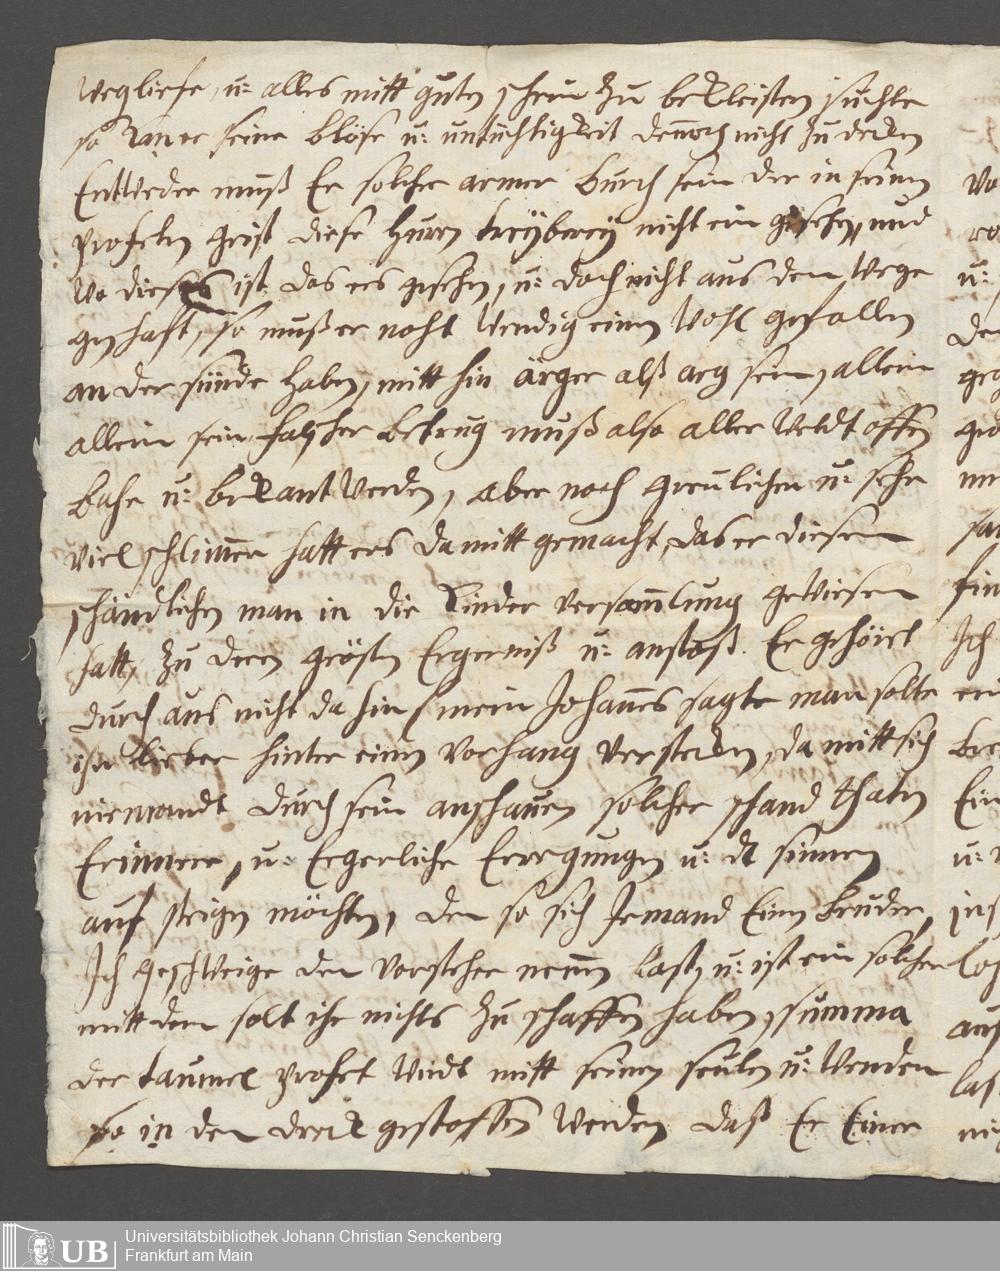 wegliefe, u: alles mitt guten schein zu bekleisten suchte
so kan er seine blöse u: untüchtigkeit dennoch nicht zu decken
Entweder muß Er solcher armer Bursch sein der in seinem
profeten geist diese Huren treyberey nicht ein gesehen, und
wo dieses ist das ers gesehen, u: doch nicht aus dem wege
geschafft, so muß er noht wendig einen wohl gefallen
an der sünde haben, mitt hin ärger alß arg sein, allein
allein sein falscher Betrug muß also aller weldt offen
bahr u: bekant werden, aber noch greulichen u: sehr
viel schlimer hatt ers da mitt gemacht, das er diesen
schändlichen man in die Kinder versamlung gewiesen
hatt, zu deren grösten Ergerniß u: anstoß. Er gehöret
durch aus nicht da hin, mein Johanes sagte man solte
ihn lieber hinter einen vorhang verstecken, da mitt sich
niemandt durch sein anschauen solcher schand thaten
Erinnere, u: Ergerliche Erregungen u: sinnen
auf steigen möchten, den so sich Jemand Einen bruder,
Ich geschweige den vorsteher nenen last, u: ist ein solcher
mitt dem solt ihr nichts zu schaffen haben, summa
der taumel profet wirdt mitt seinen seulen u: wenden
so in den dreck gestossen werden daß Er Einer
UB
Universitätsbibliothek Johann Christian Senckenberg
Frankfurt am Main